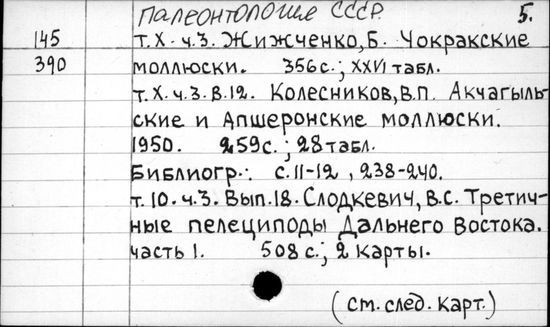 Палеонтология СССР. 5.
145 т. X. ч.3. Жижченко, Б. Чокракские
390 моллюски. 356 с.; XXVI табл.
т. X. ч.3. в.12. Колесников, В.П. Акчагыль-
ские и Апшеронские моллюски.
1950. 259 с.; 28 табл.
Библиогр.: с. 11-12, 238-240.
т. 10. ч.3. Вып. 18. Слодкевич, В.С. Третич-
ные пелециподы Дальнего Востока.
часть 1. 508 с.; 2 карты.
(см. след. карт.)